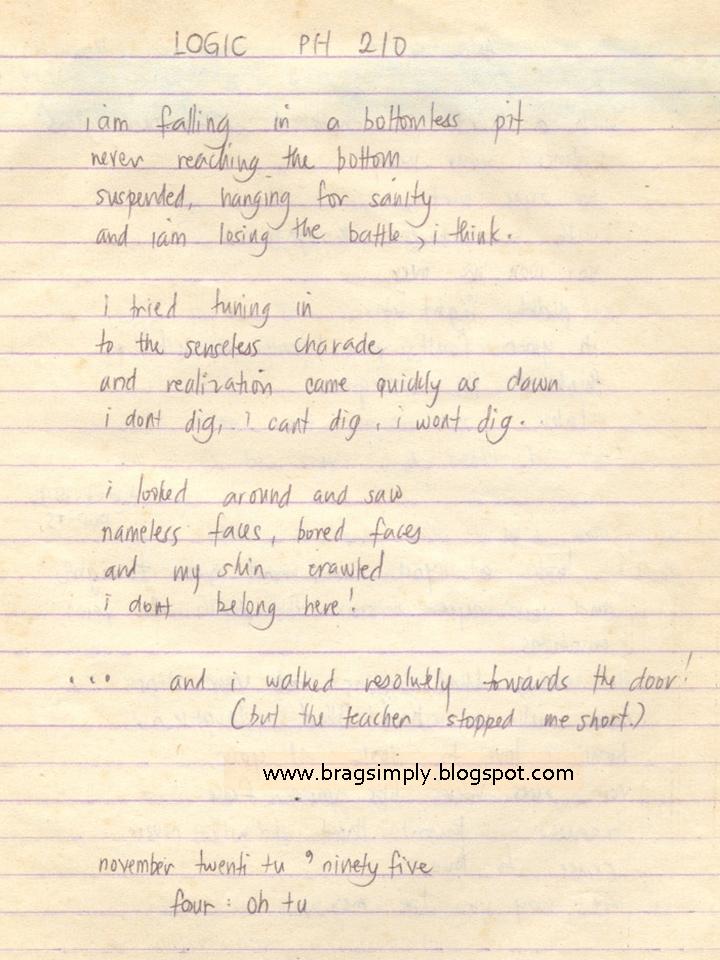 LOGIC PH 210
i am falling in a bottomless pit
never reaching the bottom
suspended, hanging for sanity
and iam losing the battle, i think.
i tried tuning in
to the senseless charade
and realization came quickly as dawn
i dont dig, i cant dig, i wont dig.
i looked around and saw
nameless faces, bored faces
and my skin crawled
i dont belong here!
... and i walked resolutely towards the door!
(but the teacher stopped me short.)
www.bragsimply.blogspot.com
november twenti tu 'ninety five
four: oh tu